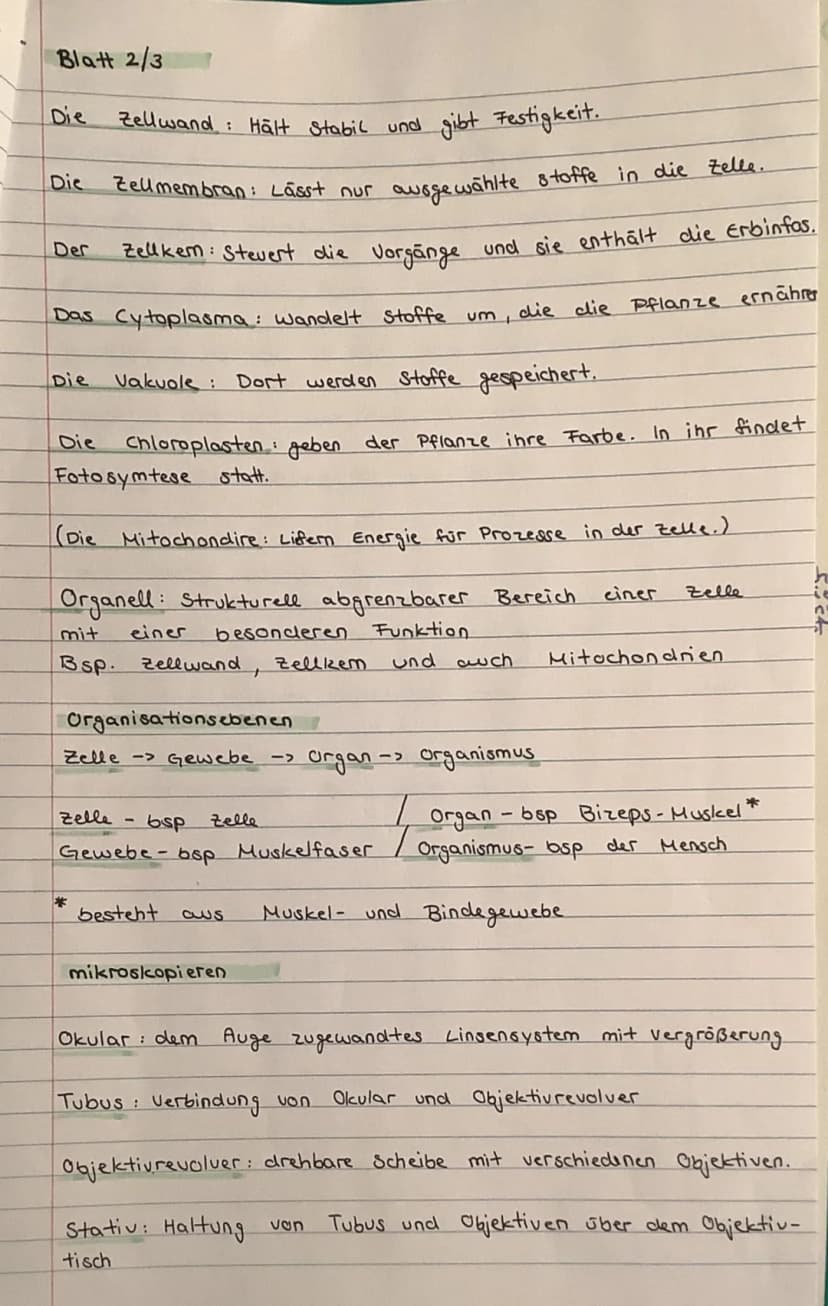 Blatt 2/3
Die Zellwand : Hält Stabil und gibt Festigkeit.
Die Zellmembran : Lässt nur ausgewählte Stoffe in die Zelle.
Der Zellkern : Steuert die Vorgänge und sie enthält die Erbinfos.
Das Cytoplasma : Wandelt Stoffe um, die die Pflanze ernähren
Die Vakuole : Dort werden Stoffe gespeichert.
Die Chloroplasten : geben der Pflanze ihre Farbe. In ihr findet
Fotosymtese statt.
(Die Mitochondire : Lifern Energie für Prozesse in der Zelle.)
Organell : Strukturell abgrenzbarer Bereich einer Zelle
mit einer besonderen Funktion
Bsp. Zellwand, Zellkern und auch Mitochondrien
Organisationsebenen
Zelle -> Gewebe -> Organ -> Organismus
Zelle - bsp Zelle / Organ - bsp Bizeps-Muskel*
Gewebe - bsp Muskelfaser / Organismus - bsp der Mensch
* besteht aus Muskel- und Bindegewebe
mikroskopieren
Okular : dem Auge zugewandtes Linsensystem mit Vergrößerung
Tubus : Verbindung von Okular und Objektivrevolver
Objektivrevolver : drehbare Scheibe mit verschiedenen Objektiven.
Stativ : Haltung von Tubus und Objektiven über dem Objektiv-
tisch